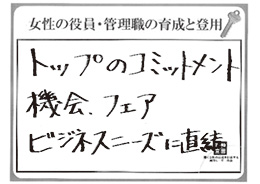 女性の役員・管理職の育成と登用
トップのコミットメント
機会、フェア
ビジネスニーズに直結